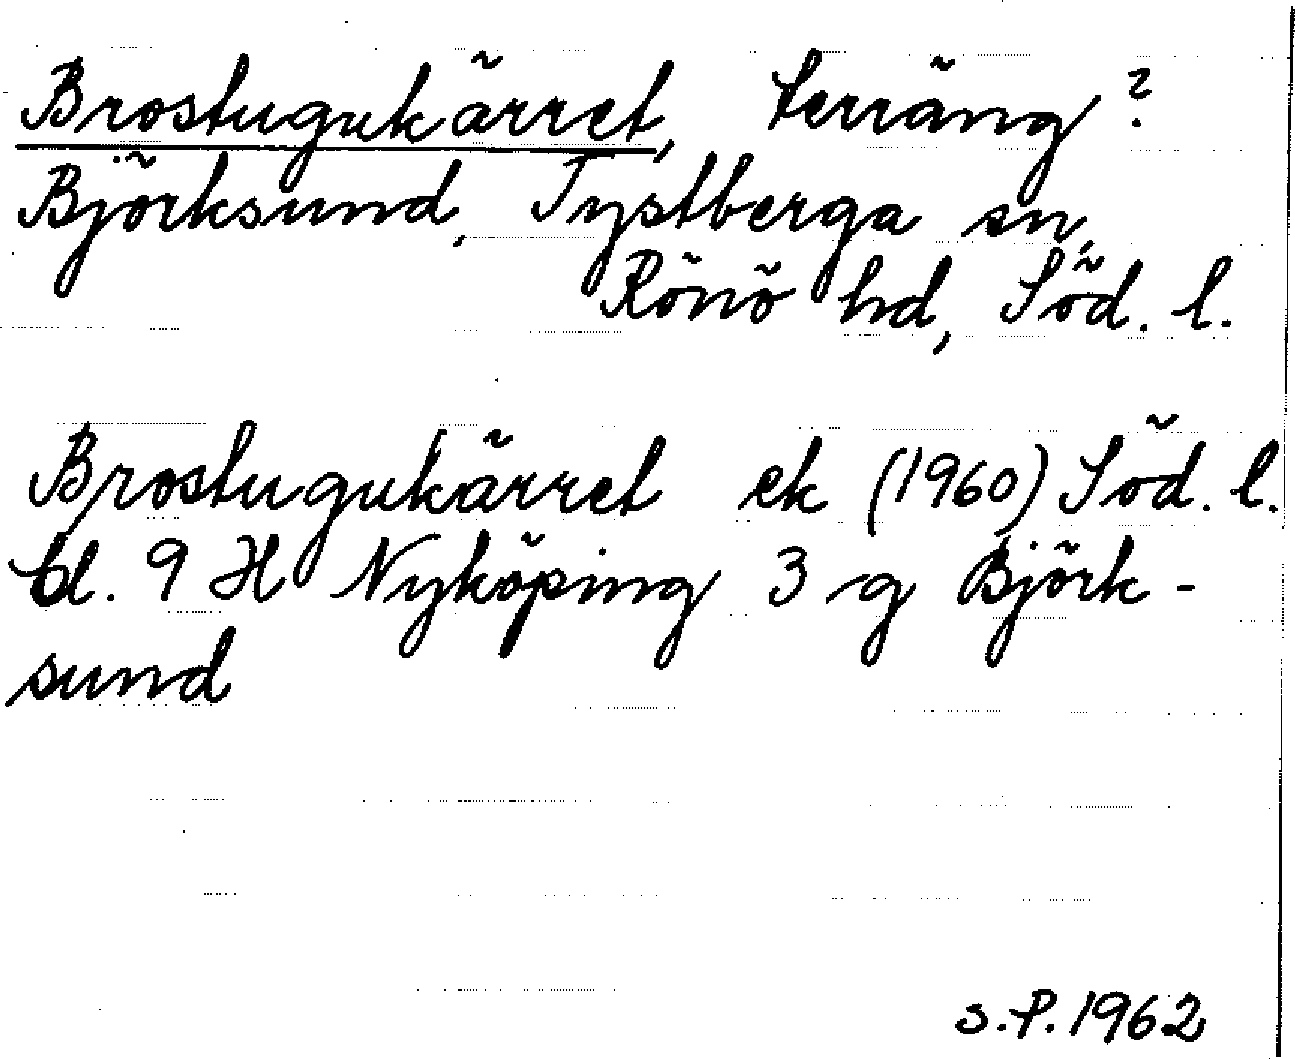 Brostugukärret, terräng?
Björksund, Tystberga sn,
Rönö hd, Söd. l.
Brostugukärret ek (1960) Söd. l.
bl. 9 H Nyköping 3 g Björk-
sund
S.P. 1962